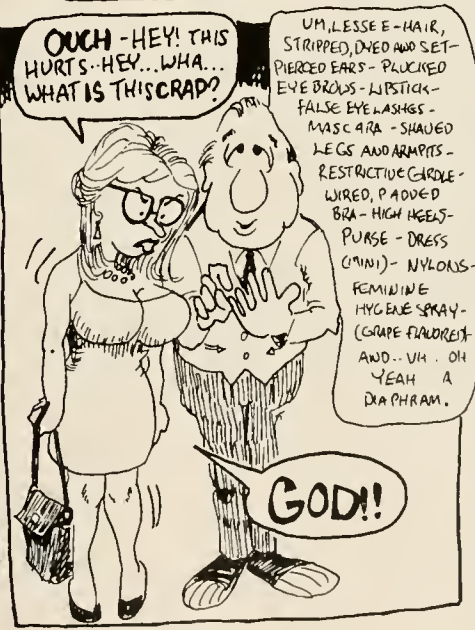 OUCH - HEY! THIS
HURTS..HEY...WHA...
WHAT IS THIS CRAP?
UM, LESSEE - HAIR,
STRIPPED, DYED AND SET-
PIERCED EARS - PLUCKED
EYEBROWS - LIPSTICK-
FALSE EYELASHES-
MASCARA - SHAVED
LEGS AND ARMPITS-
RESTRICTIVE GIRDLE-
WIRED, PADDED
BRA - HIGH HEELS-
PURSE - DRESS
(MINI) - NYLONS-
FEMININE
HYGENE SPRAY-
(GRAPE FLAVORED)-
AND.. UH. OH
YEAH A
DIAPHRAM.
GOD!!